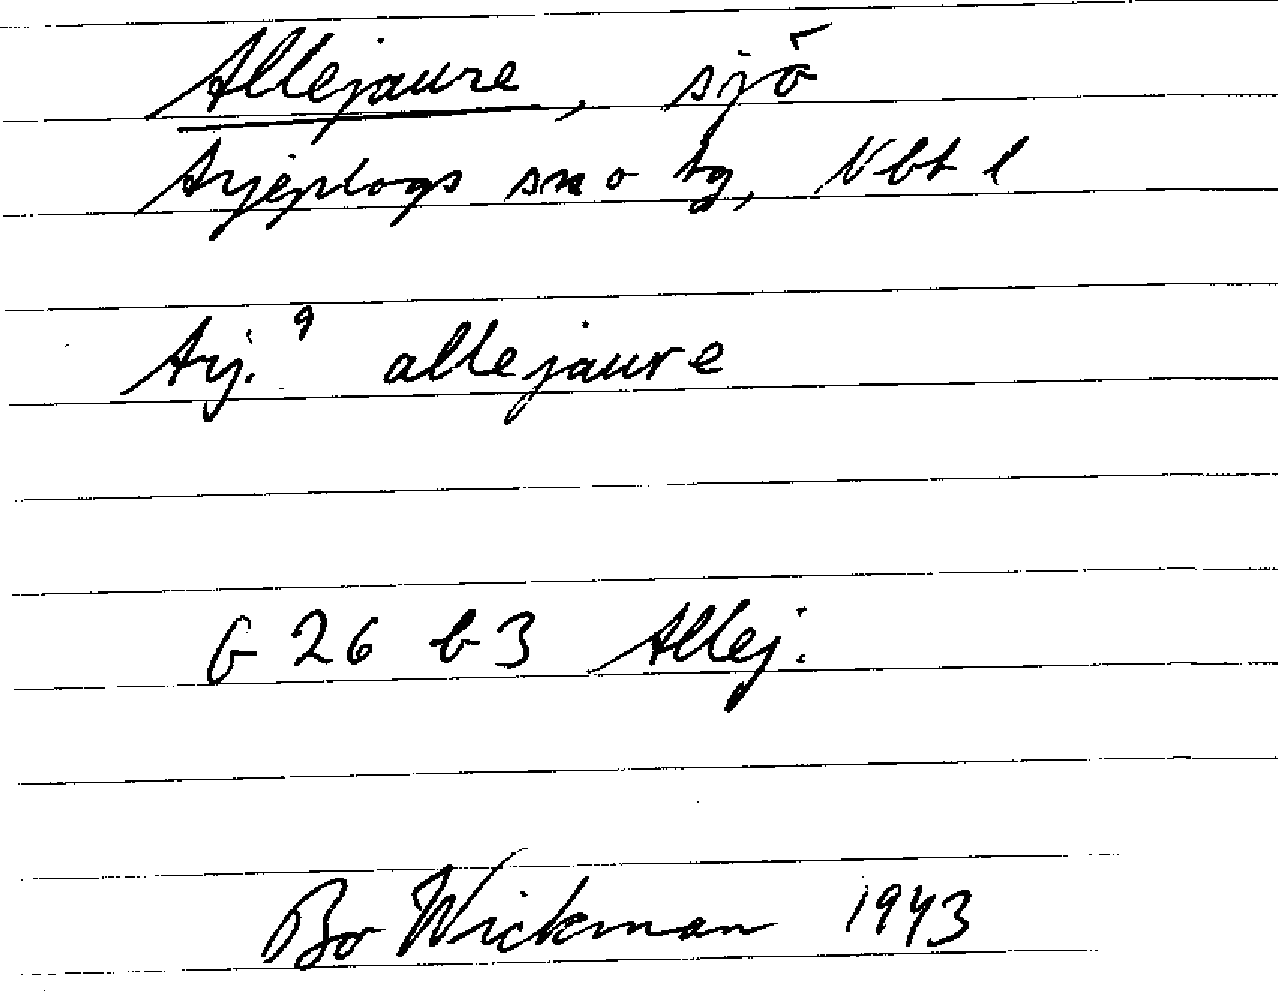 Allejaure, sjö
Arjeplogs sn o tg, Vbt l
Arj. 9 allejaure
G 26 b 3 Allej.
Bo Wickman 1943